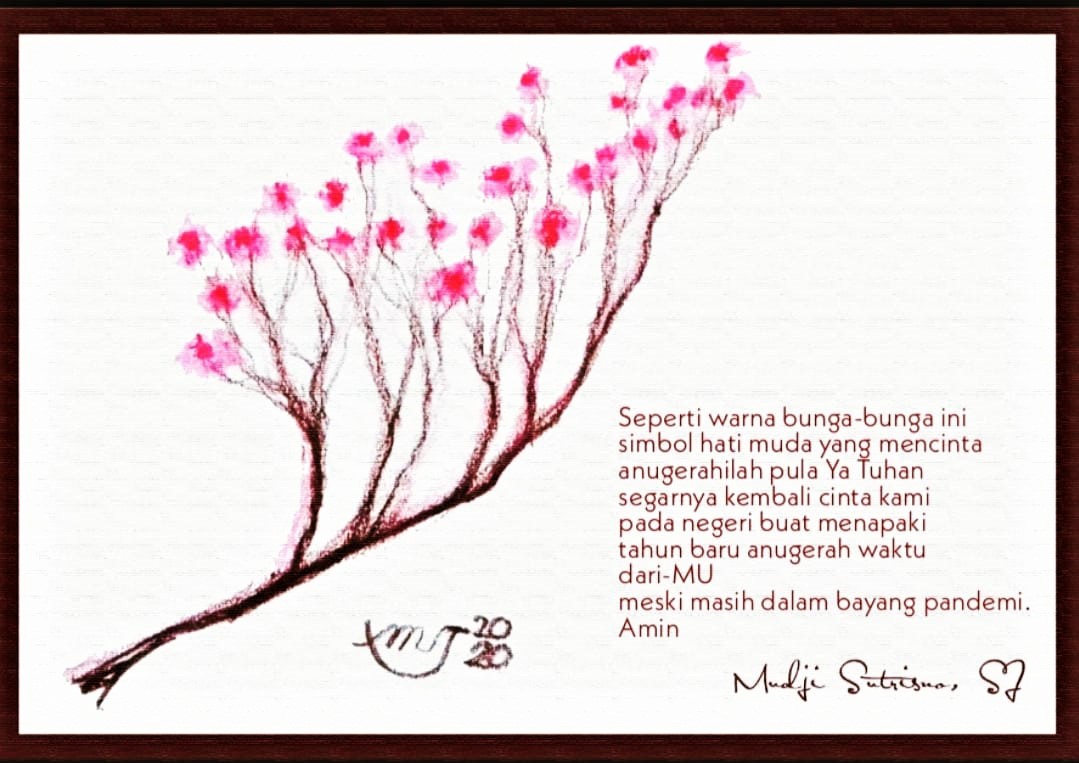 Seperti warna bunga-bunga ini
simbol hati muda yang mencinta
anugerahilah pula Ya Tuhan
segarnya kembali cinta kami
pada negeri buat menapaki
tahun baru anugerah waktu
dari-MU
meski masih dalam bayang pandemi.
Amin
20
20
Mudji Sutrisno, SJ